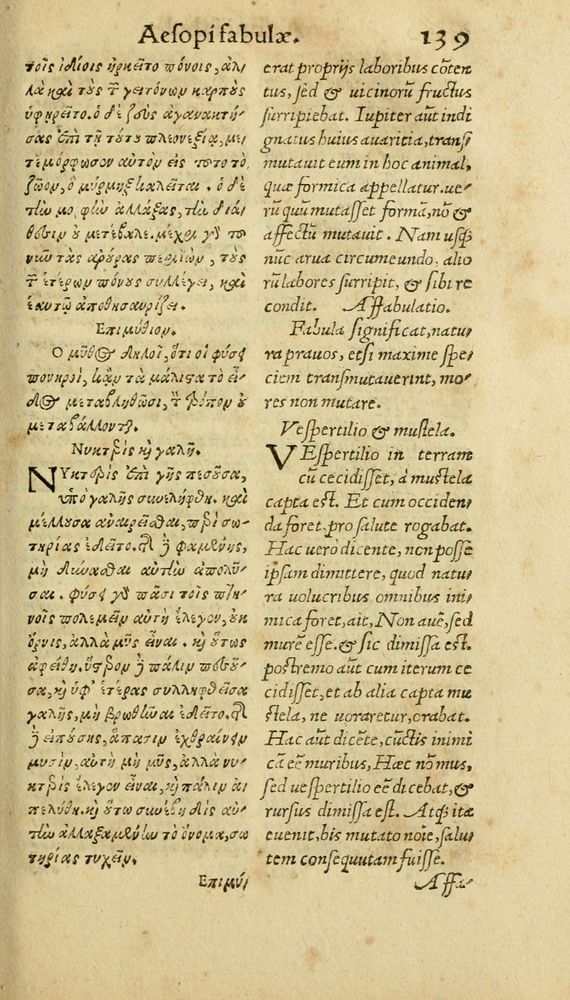 Aesopi fabulæ. 139
τοῖς ἰδίοις ἠρκεῖτο πόνοις, ἀλ
λὰ καὶ τοὺς τ̃ γειτόνων καρποὺς
ὑφῃρεῖτο. ὁ δὲ ζεὺς ἀγανακτή
σας ἐπὶ τῇ τούτου πλεονεξίᾳ, με
τεμόρφωσον αὐτὸν εἰς τοῦτο τὸ
ζῶον, ὃ μύρμηξ καλεῖται. ὁ δὲ
τὴν μορφὴν ἀλλάξας, τὴν διά
θεσιν οὐ μετέβαλε. μέχρι γὰρ τοῦ
νῦν τὰς ἀρούρας περιϊὼν, τοὺς
τ̃ ἑτέρων πόνους συλλέγει, καὶ
ἑαυτῷ ἀποθησαυρίζει.
Επιμύθιον.
Ο μῦθος δηλοῖ, ὅτι οἱ φύσει
πονηροὶ, κἂν τὰ μάλιστα τὸ εἶ
δος μεταβληθῶσι, τ̃ τρόπον οὐ
μεταβάλλονται.
Νυκτερὶς καὶ γαλῆ.
ΝΥκτερὶς ἐπὶ γῆς πεσοῦσα,
ὑπὸ γαλῆς συνελήφθη. καὶ
μέλλουσα ἀναιρεῖσθαι, περὶ σω
τηρίας ἐδεῖτο. τῆς δὲ φαμένης,
μὴ δύνασθαι αὐτὴν ἀπολῦ
σαι. φύσει γὰρ πᾶσι τοῖς πτη
νοῖς πολεμεῖν αὐτὴ ἔλεγον, οὐκ
ὄρνις, ἀλλὰ μῦς εἶναι. καὶ οὕτως
ἀφείθη. ὕστερον δὲ πάλιν πεσοῦ
σα, καὶ ὑφ' ἑτέρας συλληφθεῖσα
γαλῆς, μὴ βρωθῆναι ἐδεῖτο. τῆς
δὲ εἰπούσης, ἅπασιν ἐχθραίνειν
μυσὶν, αὐτὴ μὴ μῦς, ἀλλὰ νυ
κτερὶς ἔλεγον εἶναι, καὶ πάλιν ἀ
πελύθη. καὶ οὕτω συνέβη δὶς αὐ
τὴν ἀλλαξαμένην τὸ ὄνομα, σω
τηρίας τυχεῖν.
Επιμύ/
erat proprijs laboribus cōten
tus, sed & uicinorum fructus
surripiebat. Iupiter aūt indi
gnatus huius auaritia, transf
mutauit eum in hoc animal,
quæ formica appellatur. ue⸗
rū quū mutasset formā, nō &
affectū mutauit. Nam usq;
nūc arua circumeundo, alio
rū labores surripit, & sibi re
condit. Affabulatio.
Fabula significat, natu⸗
ra prauos, etsi maxime spe⸗
ciem transmutauerint, mo⸗
res non mutare.
Vespertilio & mustela.
VEspertilio in terram
cū cecidisset, à mustela
capta est. Et cum occiden⸗
da foret, pro salute rogabat.
Hac uerò dicente, non posse
ipsam dimittere, quod natu⸗
ra uolucribus omnibus ini⸗
mica foret, ait, Non auē, sed
murē esse. & sic dimissa est.
postremo aūt cum iterum ce
cidisset, et ab alia capta mu
stela, ne uoraretur, orabat.
Hac aūt dicēte, cūctis inimi
cā eē muribus, Hæc nō mus,
sed uespertilio eē dicebat, &
rursus dimissa est. Atq; ita
euenit, bis mutato noīe, salu⸗
tem consequutam fuisse.
Affa⸗